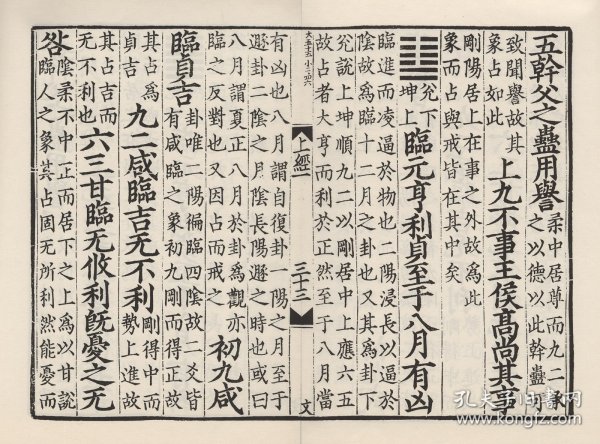 五幹父之蠱用譽
柔中居尊而九二
之以德以此幹蠱
致聞譽故其
象占如此
上九不事王侯髙尚其事
剛陽居上在事之外故為此
象而占與戒皆在其中矣
兊下
坤上
臨元亨利貞至于八月有凶
臨進而凌逼於物也二陽浸長以逼於
陰故為臨十二月之卦也又其為卦下
兊說上坤順九二以剛居中上應六五
故占者大亨而利於正然至于八月當
上經一
三十三
文
有凶也八月謂自復卦一陽之月至于
遯卦二陰之月陰長陽遯之時也或曰
八月謂夏正八月於卦為觀亦
臨之反對也又因占而戒之
初九咸
臨貞吉
卦唯二陽徧臨四陰故二爻皆
有咸臨之象初九剛而得正故
其占為
貞吉
九二咸臨吉无不利
剛得中而
勢上進故
其占吉而
无不利也
六三甘臨无攸利旣憂之无
咎
陰柔不中正而居下之上為以甘說
臨人之象其占固无所利然能憂而
孔夫子旧书网
book.kongfz.com